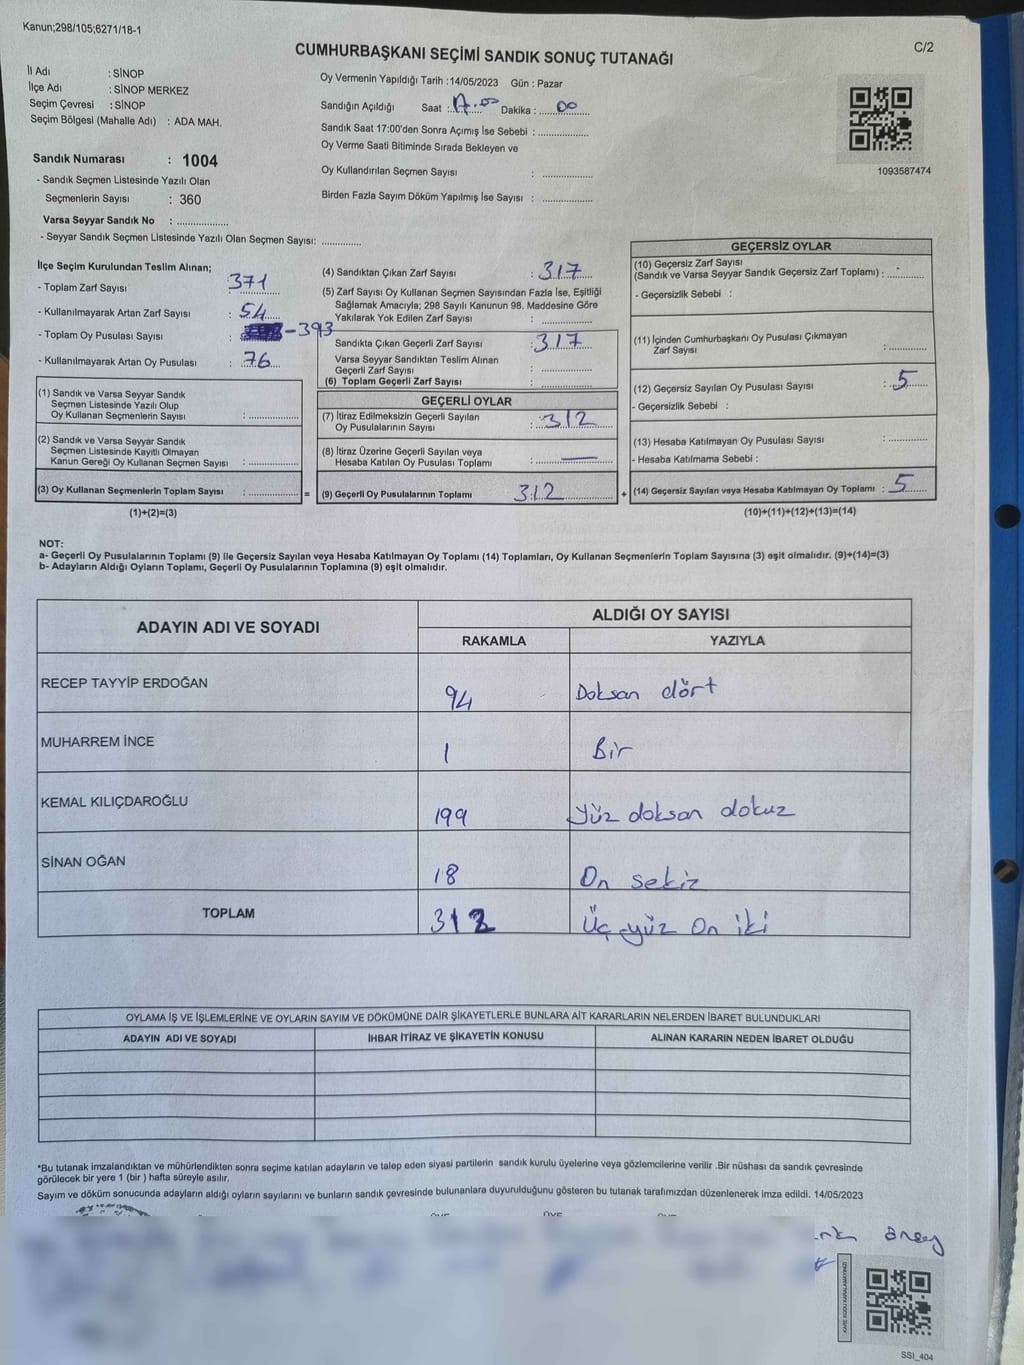 Kanun;298/105;6271/18-1
C/2
CUMHURBAŞKANI SEÇİMİ SANDIK SONUÇ TUTANAĞI
İl Adı : SİNOP
İlçe Adı : SİNOP MERKEZ
Seçim Çevresi : SİNOP
Seçim Bölgesi (Mahalle Adı) : ADA MAH.
Sandık Numarası : 1004
- Sandık Seçmen Listesinde Yazılı Olan
Seçmenlerin Sayısı : 360
Varsa Seyyar Sandık No : ..............
- Seyyar Sandık Seçmen Listesinde Yazılı Olan Seçmen Sayısı: ............
Oy Vermenin Yapıldığı Tarih : 14/05/2023 Gün : Pazar
Sandığın Açıldığı Saat : 17.00 Dakika : 00
Sandık Saat 17:00'den Sonra Açımış İse Sebebi : ..............
Oy Verme Saati Bitiminde Sırada Bekleyen ve
Oy Kullandırılan Seçmen Sayısı : ..............
Birden Fazla Sayım Döküm Yapılmış İse Sayısı : ..............
1093587474
İlçe Seçim Kurulundan Teslim Alınan;
- Toplam Zarf Sayısı : 371
- Kullanılmayarak Artan Zarf Sayısı : 54
- Toplam Oy Pusulası Sayısı : -393
- Kullanılmayarak Artan Oy Pusulası : 76
(1) Sandık ve Varsa Seyyar Sandık
Seçmen Listesinde Yazılı Olup
Oy Kullanan Seçmenlerin Sayısı : ..............
(2) Sandık ve Varsa Seyyar Sandık
Seçmen Listesinde Kayıtlı Olmayan
Kanun Gereği Oy Kullanan Seçmen Sayısı : ..............
(3) Oy Kullanan Seçmenlerin Toplam Sayısı : ..............
(1)+(2)=(3)
(4) Sandıktan Çıkan Zarf Sayısı : 317
(5) Zarf Sayısı Oy Kullanan Seçmen Sayısından Fazla İse, Eşitliği
Sağlamak Amacıyla; 298 Sayılı Kanunun 98. Maddesine Göre
Yakılarak Yok Edilen Zarf Sayısı : ..............
Sandıkta Çıkan Geçerli Zarf Sayısı : 317
Varsa Seyyar Sandıktan Teslim Alınan
Geçerli Zarf Sayısı : ..............
(6) Toplam Geçerli Zarf Sayısı : ..............
GEÇERLİ OYLAR
(7) İtiraz Edilmeksizin Geçerli Sayılan
Oy Pusulalarının Sayısı : 312
(8) İtiraz Üzerine Geçerli Sayılan veya
Hesaba Katılan Oy Pusulası Toplamı : —
= (9) Geçerli Oy Pusulalarının Toplamı 312 +
GEÇERSİZ OYLAR
(10) Geçersiz Zarf Sayısı
(Sandık ve Varsa Seyyar Sandık Geçersiz Zarf Toplamı) : ..............
- Geçersizlik Sebebi :
(11) İçinden Cumhurbaşkanı Oy Pusulası Çıkmayan
Zarf Sayısı : ..............
(12) Geçersiz Sayılan Oy Pusulası Sayısı : 5
- Geçersizlik Sebebi :
(13) Hesaba Katılmayan Oy Pusulası Sayısı : ..............
- Hesaba Katılmama Sebebi :
(14) Geçersiz Sayılan veya Hesaba Katılmayan Oy Toplamı : 5
(10)+(11)+(12)+(13)=(14)
NOT:
a- Geçerli Oy Pusulalarının Toplamı (9) ile Geçersiz Sayılan veya Hesaba Katılmayan Oy Toplamı (14) Toplamları, Oy Kullanan Seçmenlerin Toplam Sayısına (3) eşit olmalıdır. (9)+(14)=(3)
b- Adayların Aldığı Oyların Toplamı, Geçerli Oy Pusulalarının Toplamına (9) eşit olmalıdır.
ADAYIN ADI VE SOYADI
ALDIĞI OY SAYISI
RAKAMLA YAZIYLA
RECEP TAYYİP ERDOĞAN 94 Doksan dört
MUHARREM İNCE 1 Bir
KEMAL KILIÇDAROĞLU 199 Yüz doksan dokuz
SİNAN OĞAN 18 On sekiz
TOPLAM 312 Üç yüz On iki
OYLAMA İŞ VE İŞLEMLERİNE VE OYLARIN SAYIM VE DÖKÜMÜNE DAİR ŞİKAYETLERLE BUNLARA AİT KARARLARIN NELERDEN İBARET BULUNDUKLARI
ADAYIN ADI VE SOYADI İHBAR İTİRAZ VE ŞİKAYETİN KONUSU ALINAN KARARIN NEDEN İBARET OLDUĞU
*Bu tutanak imzalandıktan ve mühürlendikten sonra seçime katılan adayların ve talep eden siyasi partilerin sandık kurulu üyelerine veya gözlemcilerine verilir .Bir nüshası da sandık çevresinde
görülecek bir yere 1 (bir ) hafta süreyle asılır.
Sayım ve döküm sonucunda adayların aldığı oyların sayılarını ve bunların sandık çevresinde bulunanlara duyurulduğunu gösteren bu tutanak tarafımızdan düzenlenerek imza edildi. 14/05/2023
KARE KODU KARALAMAYINIZ!
SSI_404